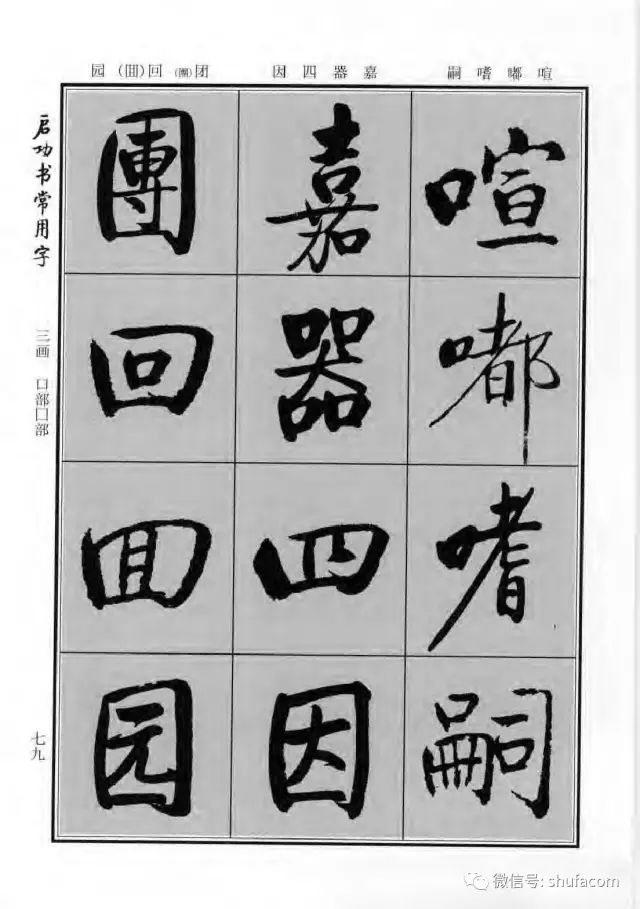 喧嘟嗜嗣
嘉器四因
团(團)回(囬)园
喧
嘟
嗜
嗣
嘉
器
四
因
團
回
囬
园
启功书常用字
三画 口部囗部
七九
微信号: shufacom